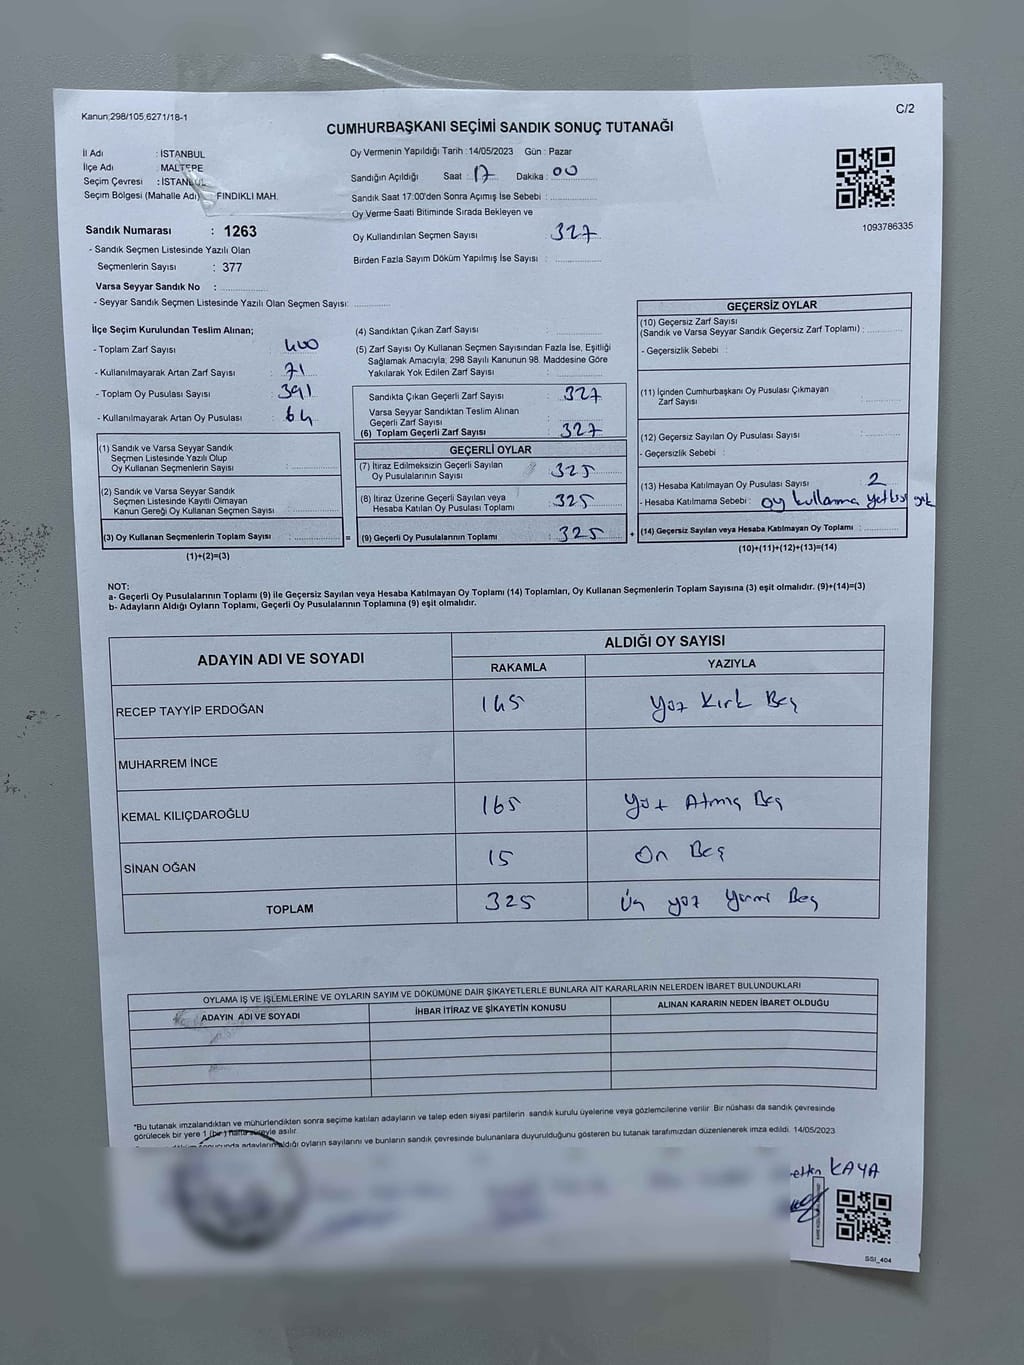 Kanun;298/105,6271/18-1
C/2
CUMHURBAŞKANI SEÇİMİ SANDIK SONUÇ TUTANAĞI
İl Adı : İSTANBUL
İlçe Adı : MALTEPE
Seçim Çevresi : İSTANBUL
Seçim Bölgesi (Mahalle Adı) FINDIKLI MAH.
Sandık Numarası : 1263
- Sandık Seçmen Listesinde Yazılı Olan
Seçmenlerin Sayısı : 377
Varsa Seyyar Sandık No :
- Seyyar Sandık Seçmen Listesinde Yazılı Olan Seçmen Sayısı:
Oy Vermenin Yapıldığı Tarih : 14/05/2023 Gün : Pazar
Sandığın Açıldığı Saat : 17 Dakika : 00
Sandık Saat 17:00'den Sonra Açımış İse Sebebi :
Oy Verme Saati Bitiminde Sırada Bekleyen ve
Oy Kullandırılan Seçmen Sayısı : 327
Birden Fazla Sayım Döküm Yapılmış İse Sayısı :
1093786335
İlçe Seçim Kurulundan Teslim Alınan;
- Toplam Zarf Sayısı : 400
- Kullanılmayarak Artan Zarf Sayısı : 71
- Toplam Oy Pusulası Sayısı : 391
- Kullanılmayarak Artan Oy Pusulası : 64
(1) Sandık ve Varsa Seyyar Sandık
Seçmen Listesinde Yazılı Olup
Oy Kullanan Seçmenlerin Sayısı :
(2) Sandık ve Varsa Seyyar Sandık
Seçmen Listesinde Kayıtlı Olmayan
Kanun Gereği Oy Kullanan Seçmen Sayısı :
(3) Oy Kullanan Seçmenlerin Toplam Sayısı : =
(1)+(2)=(3)
(4) Sandıktan Çıkan Zarf Sayısı :
(5) Zarf Sayısı Oy Kullanan Seçmen Sayısından Fazla İse, Eşitliği
Sağlamak Amacıyla; 298 Sayılı Kanunun 98. Maddesine Göre
Yakılarak Yok Edilen Zarf Sayısı :
Sandıkta Çıkan Geçerli Zarf Sayısı : 327
Varsa Seyyar Sandıktan Teslim Alınan
Geçerli Zarf Sayısı :
(6) Toplam Geçerli Zarf Sayısı : 327
GEÇERLİ OYLAR
(7) İtiraz Edilmeksizin Geçerli Sayılan
Oy Pusulalarının Sayısı : 325
(8) İtiraz Üzerine Geçerli Sayılan veya
Hesaba Katılan Oy Pusulası Toplamı : 325
(9) Geçerli Oy Pusulalarının Toplamı : 325 +
GEÇERSİZ OYLAR
(10) Geçersiz Zarf Sayısı
(Sandık ve Varsa Seyyar Sandık Geçersiz Zarf Toplamı) :
- Geçersizlik Sebebi :
(11) İçinden Cumhurbaşkanı Oy Pusulası Çıkmayan
Zarf Sayısı :
(12) Geçersiz Sayılan Oy Pusulası Sayısı :
- Geçersizlik Sebebi :
(13) Hesaba Katılmayan Oy Pusulası Sayısı : 2
- Hesaba Katılmama Sebebi : oy kullanma yetkisi yok
(14) Geçersiz Sayılan veya Hesaba Katılmayan Oy Toplamı :
(10)+(11)+(12)+(13)=(14)
NOT:
a- Geçerli Oy Pusulalarının Toplamı (9) ile Geçersiz Sayılan veya Hesaba Katılmayan Oy Toplamı (14) Toplamları, Oy Kullanan Seçmenlerin Toplam Sayısına (3) eşit olmalıdır. (9)+(14)=(3)
b- Adayların Aldığı Oyların Toplamı, Geçerli Oy Pusulalarının Toplamına (9) eşit olmalıdır.
ADAYIN ADI VE SOYADI
ALDIĞI OY SAYISI
RAKAMLA YAZIYLA
RECEP TAYYİP ERDOĞAN 145 Yüz Kırk Beş
MUHARREM İNCE
KEMAL KILIÇDAROĞLU 165 Yüz Atmış Beş
SİNAN OĞAN 15 On Beş
TOPLAM 325 Üç yüz Yirmi Beş
OYLAMA İŞ VE İŞLEMLERİNE VE OYLARIN SAYIM VE DÖKÜMÜNE DAİR ŞİKAYETLERLE BUNLARA AİT KARARLARIN NELERDEN İBARET BULUNDUKLARI
ADAYIN ADI VE SOYADI İHBAR İTİRAZ VE ŞİKAYETİN KONUSU ALINAN KARARIN NEDEN İBARET OLDUĞU
*Bu tutanak imzalandıktan ve mühürlendikten sonra seçime katılan adayların ve talep eden siyasi partilerin sandık kurulu üyelerine veya gözlemcilerine verilir. Bir nüshası da sandık çevresinde
görülecek bir yere 1 (bir) hafta süreyle asılır.
sonucunda adayların aldığı oyların sayılarını ve bunların sandık çevresinde bulunanlara duyurulduğunu gösteren bu tutanak tarafımızdan düzenlenerek imza edildi. 14/05/2023
KAYA
SSI_404